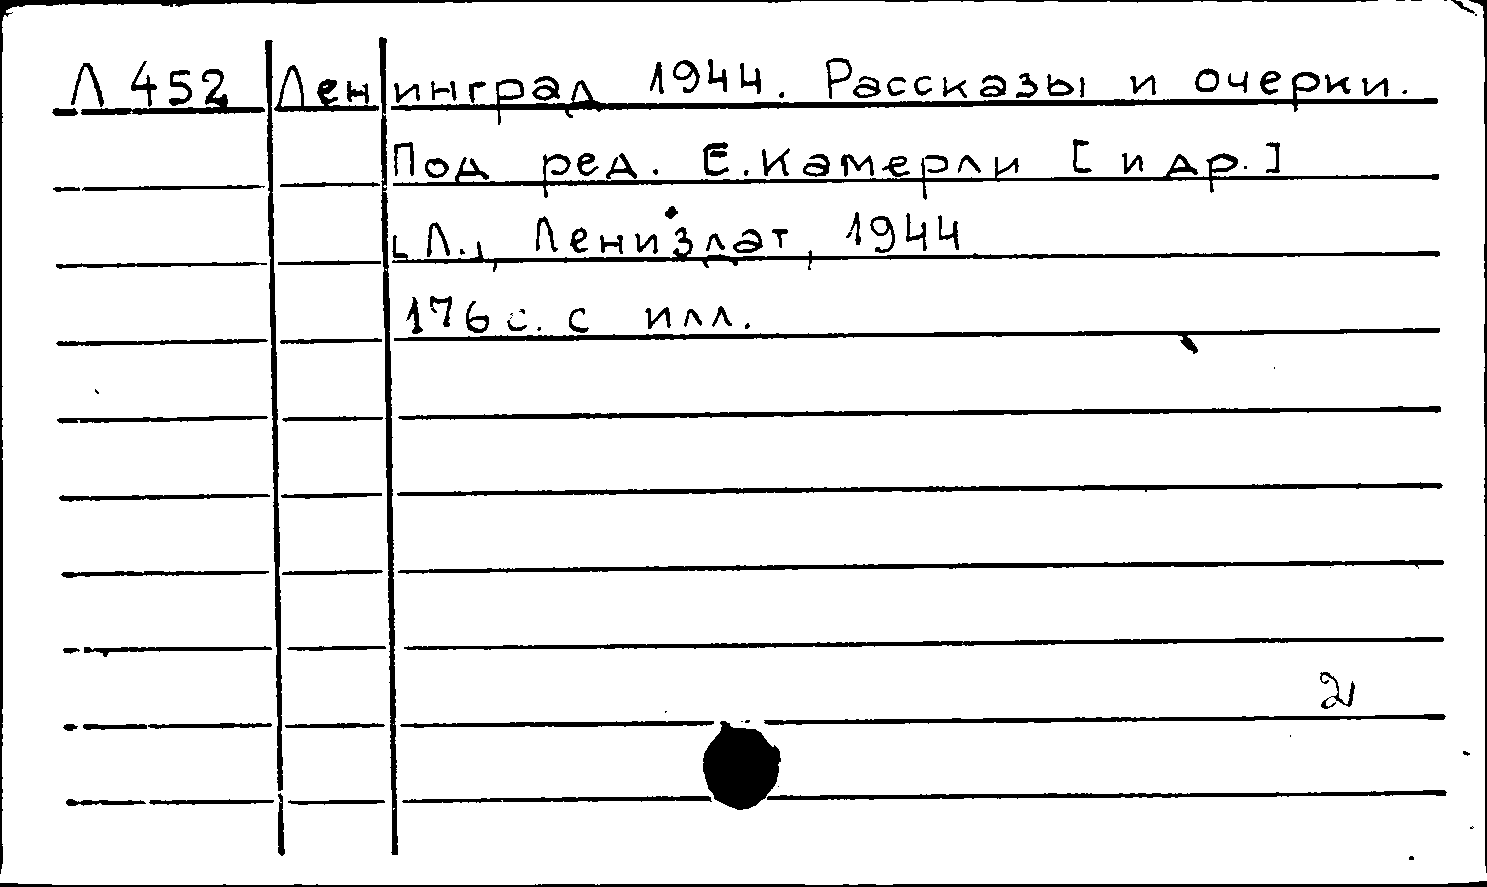 Л 452 Ленинград 1944. Рассказы и очерки.
Под ред. Е.Камерли [и др.]
[Л.], Лениздат, 1944
176 с. с илл.